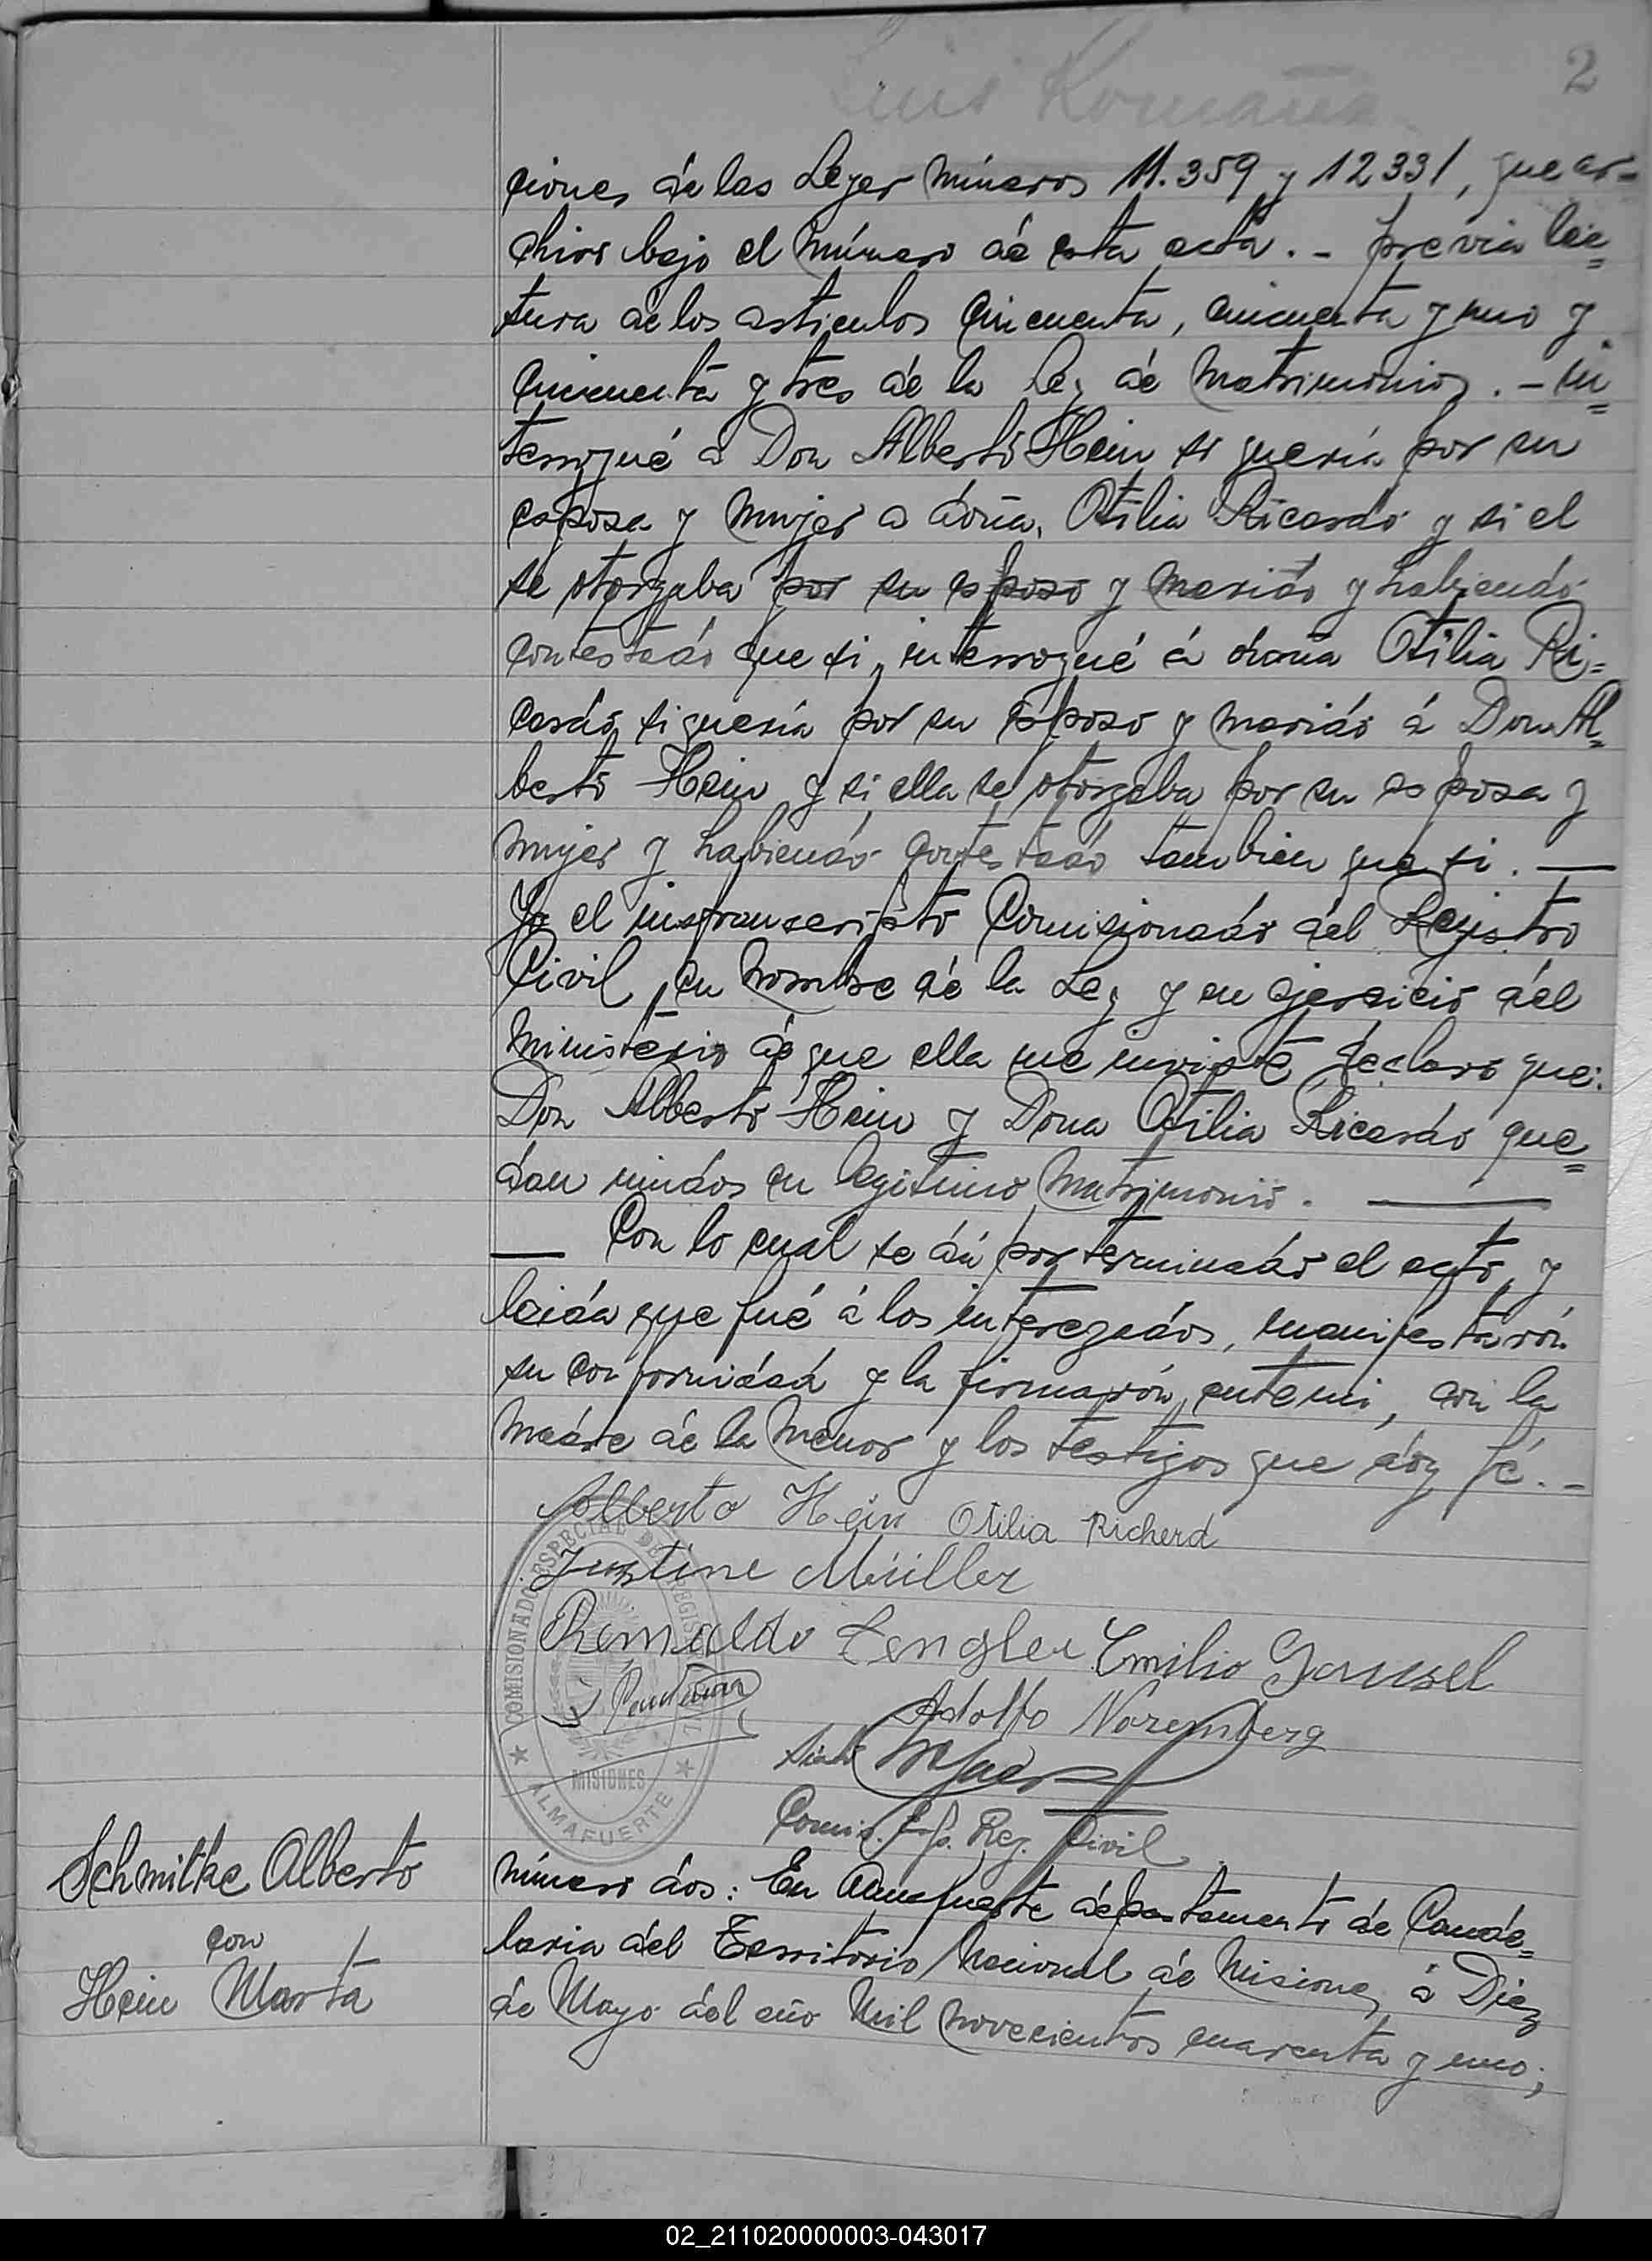 Luis Romaña
2
ciones de las Leyes números 11.359 y 12331, que ar-
chivo bajo el número de esta acta. - previa lec=
tura de los articulos cincuenta, cincuenta y uno y
cincuenta y tres de la Ley de Matrimonio. - in=
terrogué a Don Alberto Hein si quería por su
esposa y mujer a doña, Otilia Ricardo y si el
se otorgaba por su esposo y marido y habiendo
contestado que si, interrogué á doña Otilia Ri=
cardo, si quería por su esposo y marido á Don Al=
berto Hein y si, ella se otorgaba por su esposa y
mujer y habiendo contestado tambien que si. —
Yo el infranscripto Comisionado del Registro
Civil, en nombre de la Ley y en ejersicio del
ministério de que ella me inviste declaro que:
Don Alberto Hein y Dona Otilia Ricardo que=
dan unidos en legitimo Matrimonio. —
— Con lo cual se dá por terminado el acto, y
leida que fué á los interezados, manifestarón
su conformidad y la firmarón, ante mi, con la
madre de la menor y los testigos que doy fé. -
Alberto Hein Otilia Richerd
Justine Müller
Reinaldo Zengler Emilio
Adolfo Noremberg
Comis. Esp. Reg. Civil.
COMISIONADO ESPECIAL DE REGISTRO CIVIL
MISIONES
★ ALMAFUERTE ★
Schmitke Alberto
con
Hein Marta
Número dos: En Almafuerte departamento de Cande=
laria del Territorio Nacional de Misiones, á Diez
de Mayo del año Mil novecientos cuarenta y uno;
02_211020000003-043017